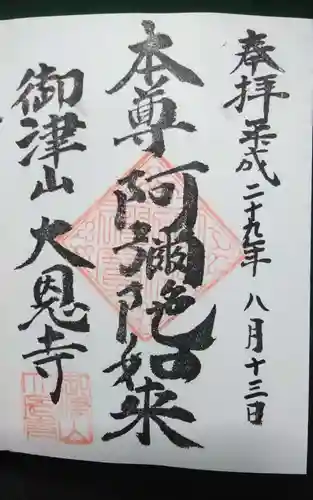 奉拝 平成二十九年 八月十三日
本尊 阿彌陀如来
御津山 大恩寺